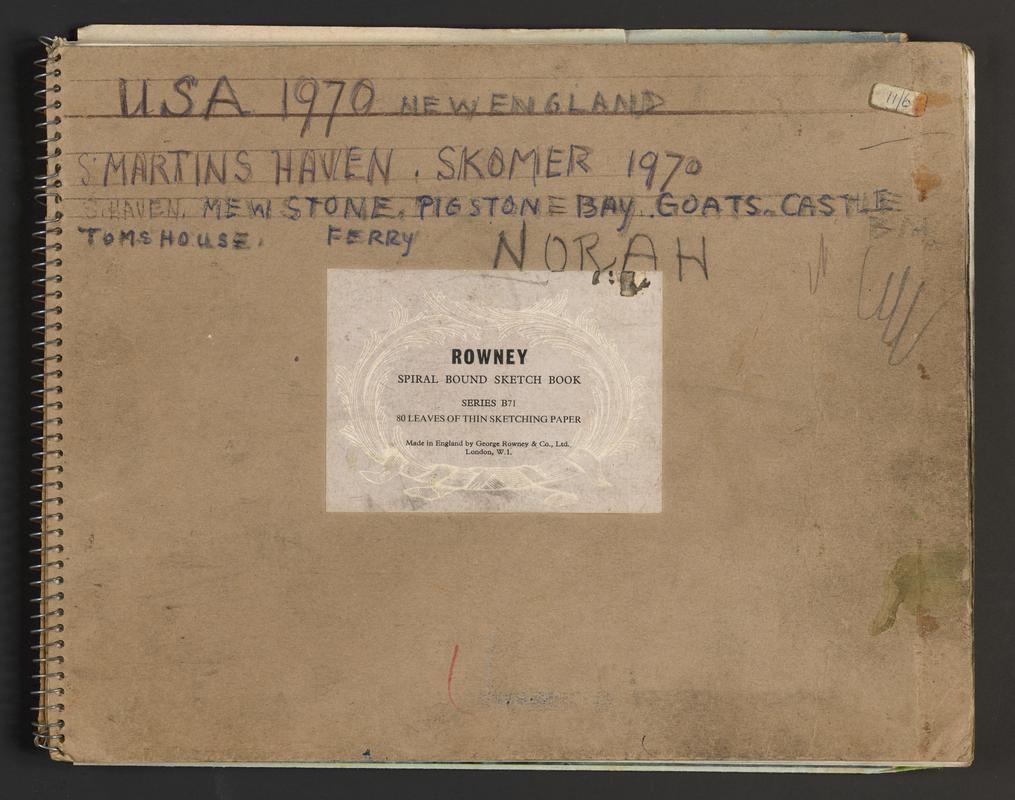 USA 1970 NEW ENGLAND
11/6
S. MARTINS HAVEN. SKOMER 1970
S. HAVEN. MEW STONE. PIGSTONE BAY. GOATS. CASTLE
TOMS HOUSE. FERRY
NORAH
ROWNEY
SPIRAL BOUND SKETCH BOOK
SERIES B71
80 LEAVES OF THIN SKETCHING PAPER
Made in England by George Rowney & Co., Ltd.
London, W.1.